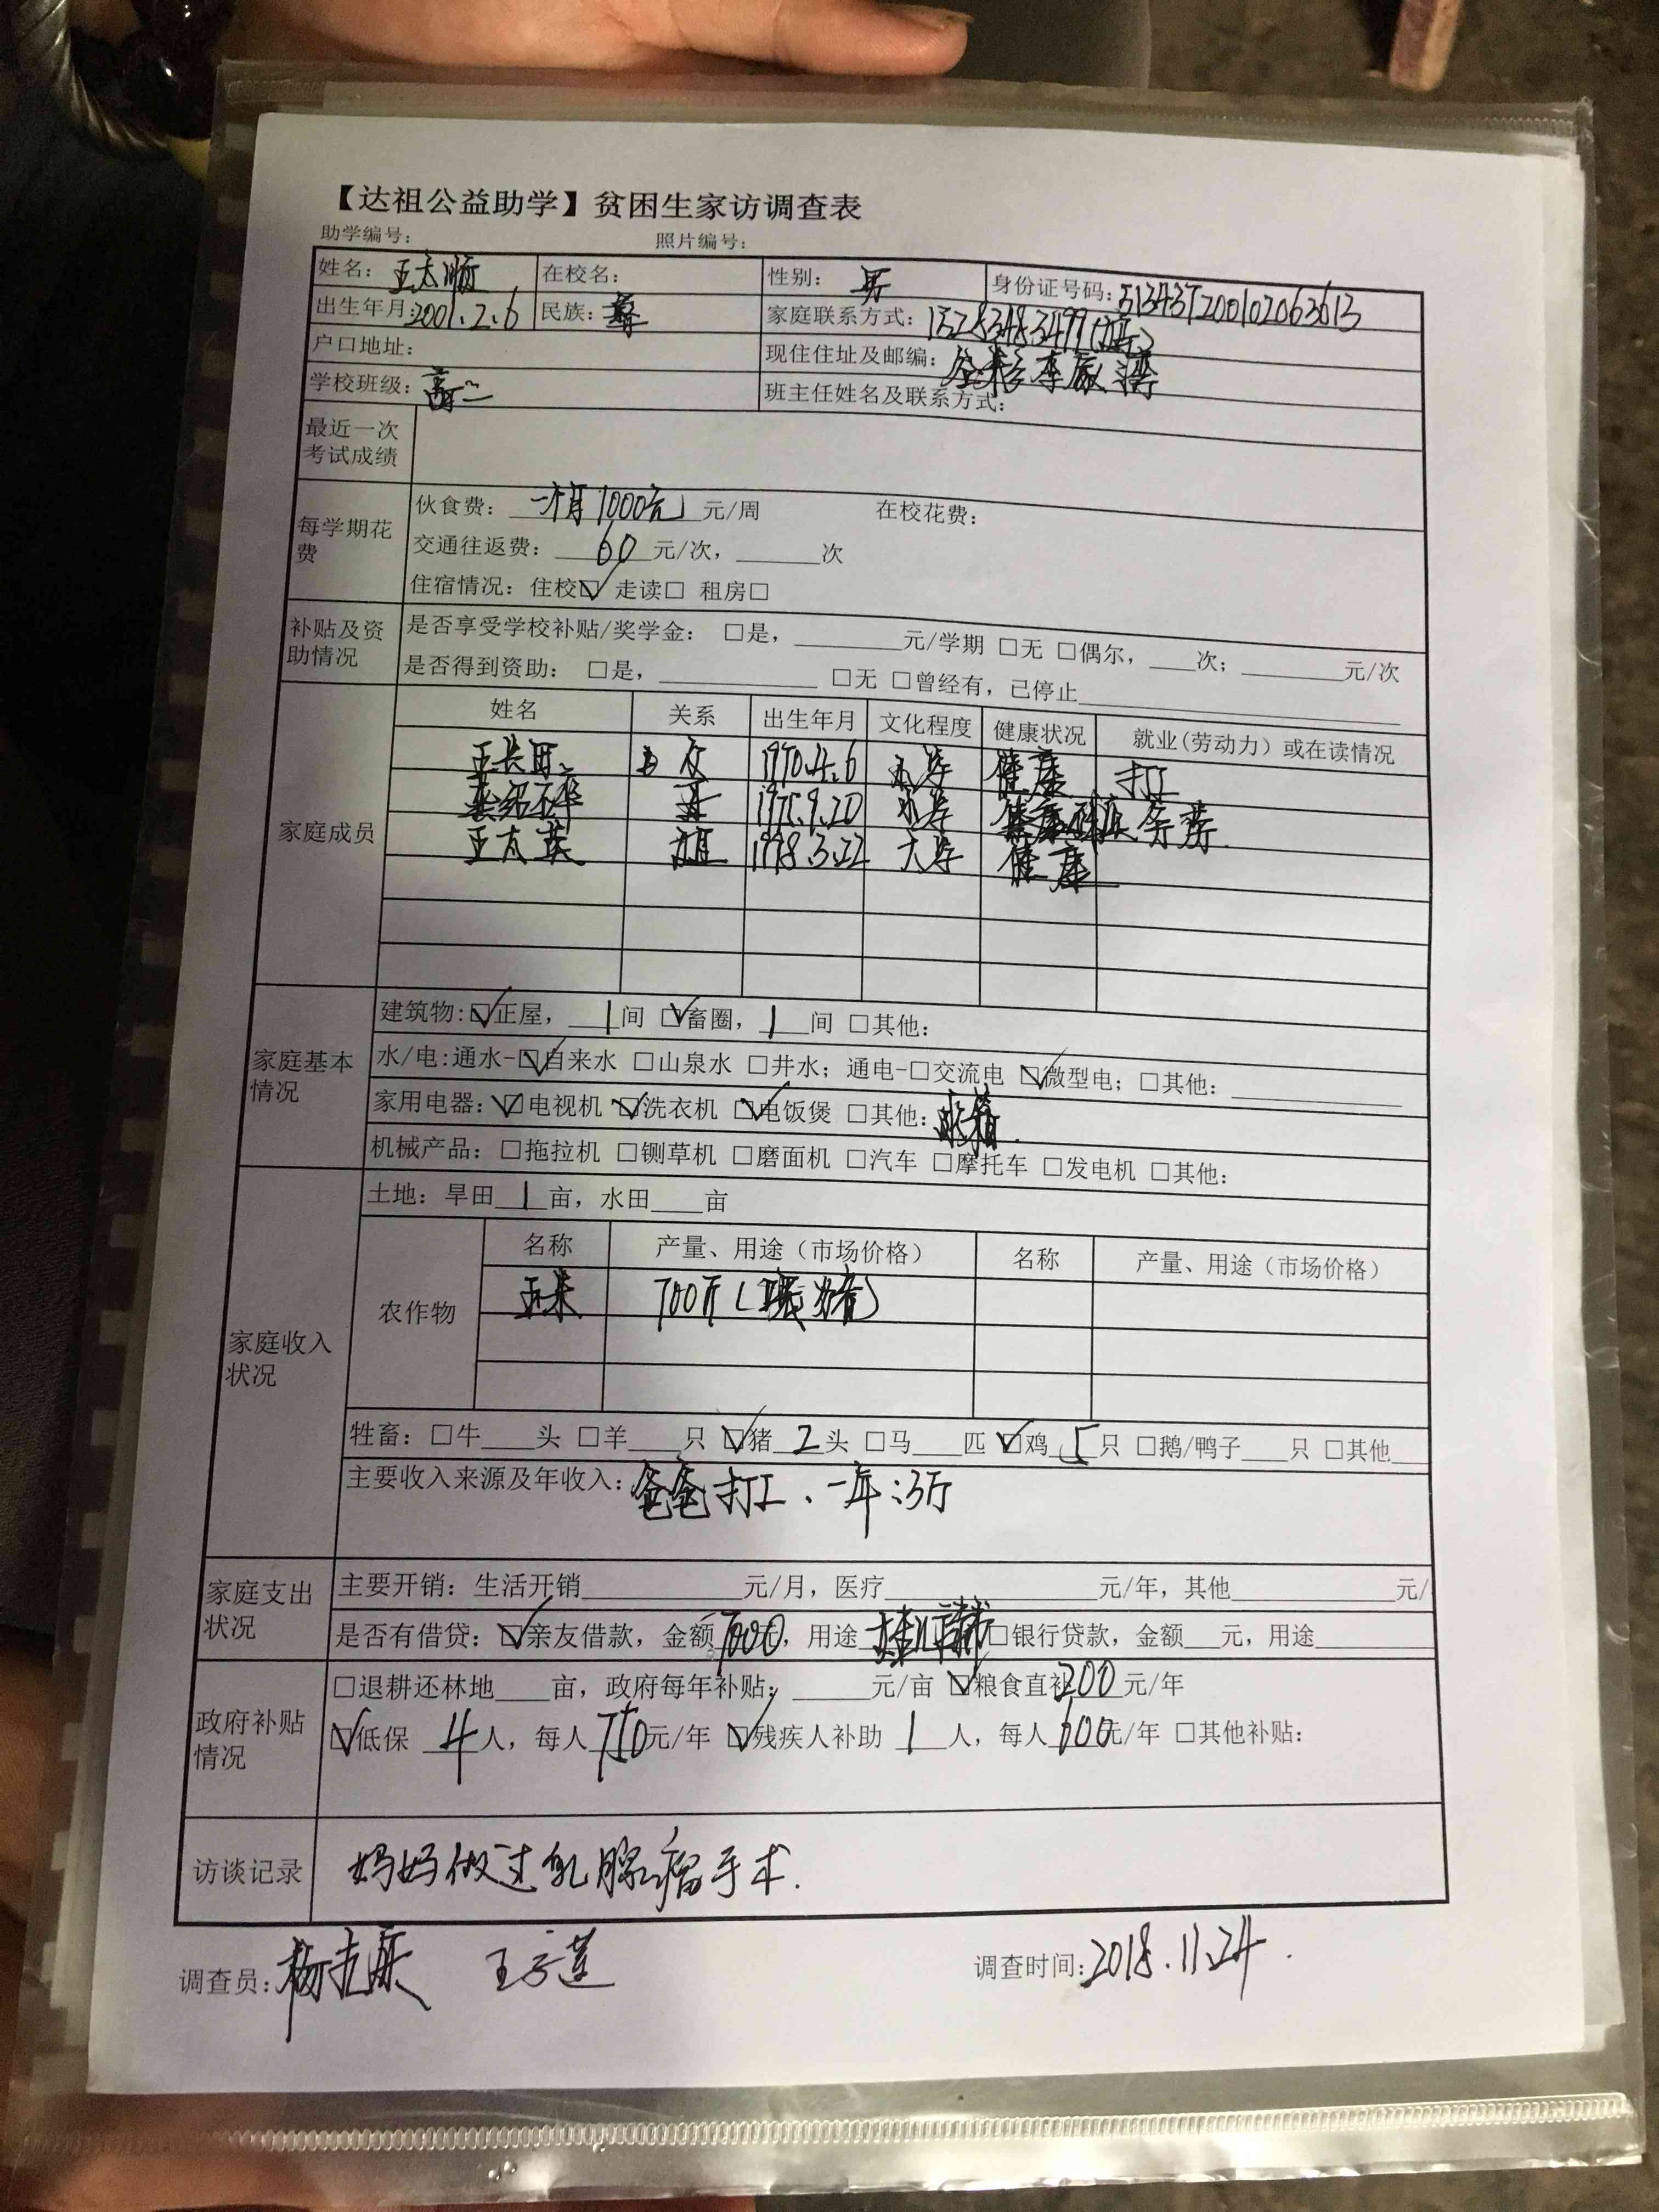 【达祖公益助学】贫困生家访调查表
助学编号： 照片编号：
姓名： 王太顺 在校名： 性别： 男 身份证号码：513437200102063613
出生年月：2001.2.6 民族：彝 家庭联系方式：15283483499
户口地址： 现住住址及邮编：
学校班级：高二 班主任姓名及联系方式：
最近一次考试成绩
每学期花费
伙食费： 一个月1000元 元/周 在校花费：
交通往返费： 60 元/次， 次
住宿情况：住校☑ 走读□ 租房□
补贴及资助情况
是否享受学校补贴/奖学金： □是， 元/学期 □无 □偶尔， 次； 元/次
是否得到资助： □是， □无 □曾经有，已停止
家庭成员
姓名 关系 出生年月 文化程度 健康状况 就业(劳动力）或在读情况
王长 父 1970.4.6 小学 健康 打工
母 1975.9.20 小学 务农
王太英 姐 1998.3.22 大学 健康
家庭基本情况
建筑物：☑正屋， 1间 ☑畜圈， 1 间 □其他：
水/电：通水-☑自来水 □山泉水 □井水；通电-□交流电 ☑微型电；□其他：
家用电器：☑电视机 ☑洗衣机 ☑电饭煲 □其他：冰箱.
机械产品：□拖拉机 □铡草机 □磨面机 □汽车 □摩托车 □发电机 □其他：
家庭收入状况
土地：旱田 1 亩，水田 亩
农作物
名称 产量、用途（市场价格） 名称 产量、用途（市场价格）
玉米 700斤
牲畜：□牛 头 □羊 只 ☑猪 2头 □马 匹 ☑鸡 5只 □鹅/鸭子 只 □其他
主要收入来源及年收入：爸爸打工、一年：3万
家庭支出状况
主要开销：生活开销 元/月，医疗 元/年，其他 元/
是否有借贷：☑亲友借款，金额7000元，用途 □银行贷款，金额 元，用途
政府补贴情况
□退耕还林地 亩，政府每年补贴： 元/亩 ☑粮食直补200元/年
☑低保 4人，每人750元/年 ☑残疾人补助 1 人，每人600元/年 □其他补贴：
访谈记录 妈妈做过乳腺瘤手术.
调查员： 调查时间：2018.11.24.